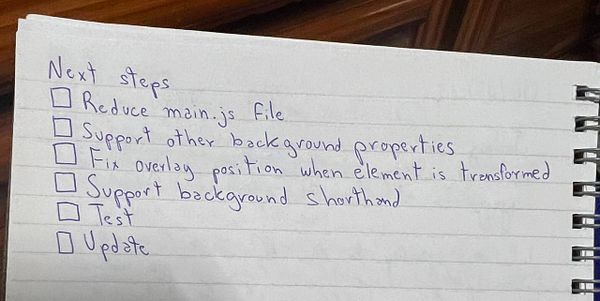 Next steps
Reduce main.js file
Support other background properties
Fix overlay position when element is transformed
Support background shorthand
Test
Update